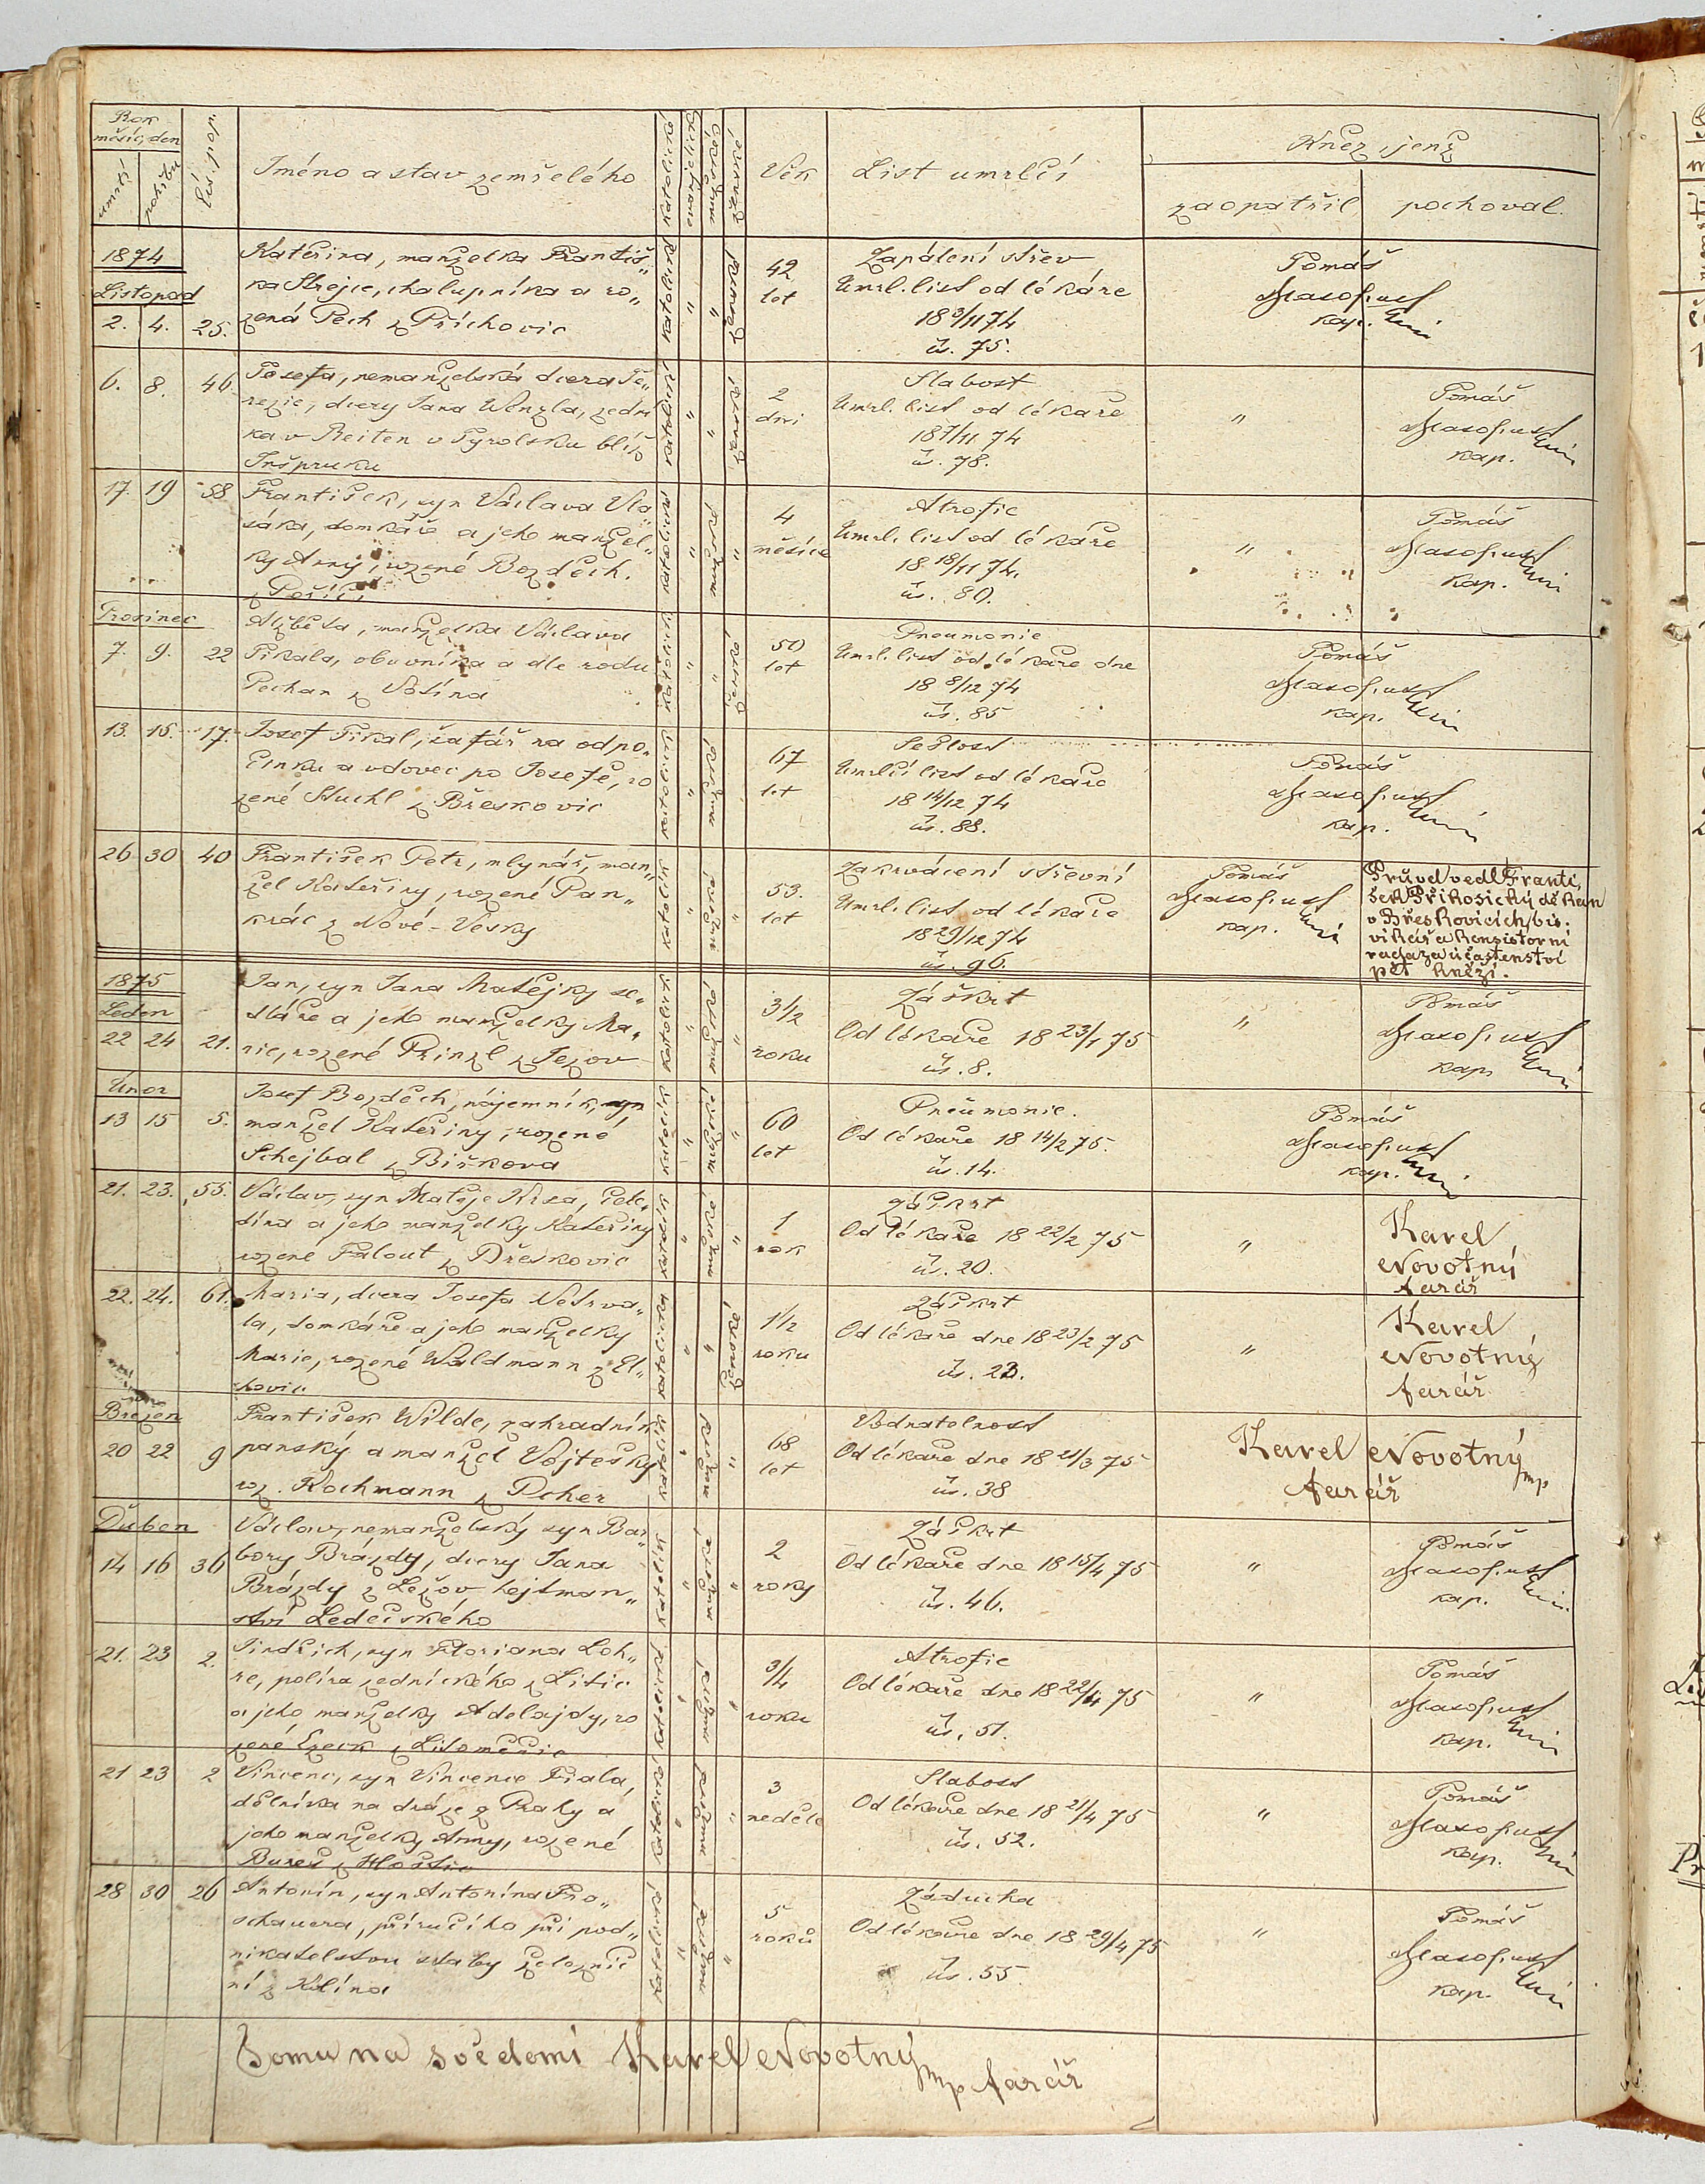 Rok
měsíc, den
úmrtí
pohřbu
čís. pop.
Jméno a stav zemřelého
katolické
mužské
ženské
Věk
List umrlčí
Kněz, jenž
zaopatřil
pochoval.
1874
Listopad
2. 4. 25.
Kateřina, manželka Františ„
ka Strejce, chalupníka a ro„
zená Pech z Příchovic
katolické
ženské
42
let
Zapálení střev
Umrl. list od lékáře
18 3/11 74
čís. 75.
Tomáš
kap.
6. 8. 46
Josefa, nemanželská dcera Te„
rezie, dcery Jana Wenzla, zední
ka v Reiten v Tyrolsku blíž
Inšpruku
2
dni
Slabost
Umrl. list od lékaře
18 7/11 74
čís. 78.
"
Tomáš
kap.
17. 19 58
František, syn Václava Vla„
sáka, domkáře a jeho manžel„
ky Anny, rozené Bozděch.
z Poříčí
4
měsíce
Atrofie
Umrl. list od lékáře
18 18/11 74.
čís. 80.
"
Tomáš
kap.
Prosinec
7. 9. 22
Alžběta, manželka Václava
Pikala, obuvníka a dle rodu
Pechan z Votína
50
let
Pneumonie
Umrl. list od lékaře dne
18 8/12 74
čís. 85
Tomáš
kap.
13. 15. 17.
Josef Pikal, šafář na odpo„
činku a vdovec po Josefě, ro
zené Stuchl z Břeskovic
67
let
Sešlost
Umrlčí list od lékaře
18 14/12 74
čís. 88.
Tomáš
kap.
26 30 40
František Petr, mlynář, man„
žel Kateřiny, rozené Pan„
krác z Nové-Vesky
53.
let
Zakrvácení střevní
Umrl. list od lékaře
18 29/12 74
čís. 96.
Tomáš
kap.
Průvod vedl Franti,
šek Přikosický děkan
v Břeskovicích, bis.
vikář a konsistorní
rada za účastenství
pět kněží.
1875
Leden
22 24 21.
Jan, syn Jana Matějky se„
dláře a jeho manželky Ma„
rie, rozené Prinzl z Jezov
3 1/2
roku
Záškrt
Od lékaře 18 23/1 75
čís. 8.
"
Tomáš
kap.
Únor
13 15 5.
Josef Bozděch, nájemník, syn
manžel Kateřiny, rozené
Schejbal z Biřkova
60
let
Pneumonie.
Od lékaře 18 14/2 75.
čís. 14.
Tomáš
kap.
21. 23. 55.
Václav, syn Matěje Krsa, čele„
dína a jeho manželky Kateřiny
rozené Falout z Břeskovic
1
rok
Záškrt
Od lékaře 18 22/2 75
čís. 20.
"
Karel
Novotný
farář
22. 24. 61.
Maria, dcera Josefa Netrva„
la, domkáře a jeho manželky
Marie, rozené Waldmann z El„
hovic
1 1/2
roku
Záškrt
Od lékaře dne 18 23/2 75
čís. 23.
"
Karel
Novotný
farář
Březen
20 22 9
František Wilde, zahradník
panský, a manžel Vojtěšky
roz. Kochmann z Pcher
68
let
Vodnatelnost
Od lékaře dne 18 21/3 75
čís. 38
Karel Novotný mp
farář
Duben
14 16 36
Václav, nemanželský syn Bar„
bory Brázdy, dcery Jana
Brázdy z Ležov, hejtman„
ství Ledečského
2
roky
Záškrt
Od lékaře dne 18 15/4 75
čís. 46.
"
Tomáš
kap.
21. 23 2.
Jindřich, syn Floriana Loh„
re, políra zednického z Litic
a jeho manželky Adelajdy, ro
zené z Litoměřic
3/4
roku
Atrofie
Od lékaře dne 18 22/4 75
čís. 51.
"
Tomáš
kap.
21 23 2
Vincenc, syn Vincence Fiala,
dělníka na dráze z Prahy a
jeho manželky Anny, rozené
Bureš z Hoštic
3
neděle
Slabost
Od lékaře dne 18 21/4 75
čís. 52.
"
Tomáš
kap.
28 30 26
Antonín, syn Antonína Pro„
schauera, příručího při pod„
nikatelstvu stavby železnič
ní z Kolína
5
roků
Záducha
Od lékaře dne 18 29/4 75
čís. 55.
"
Tomáš
kap.
Tomu na svědomí Karel Novotný
mp farář